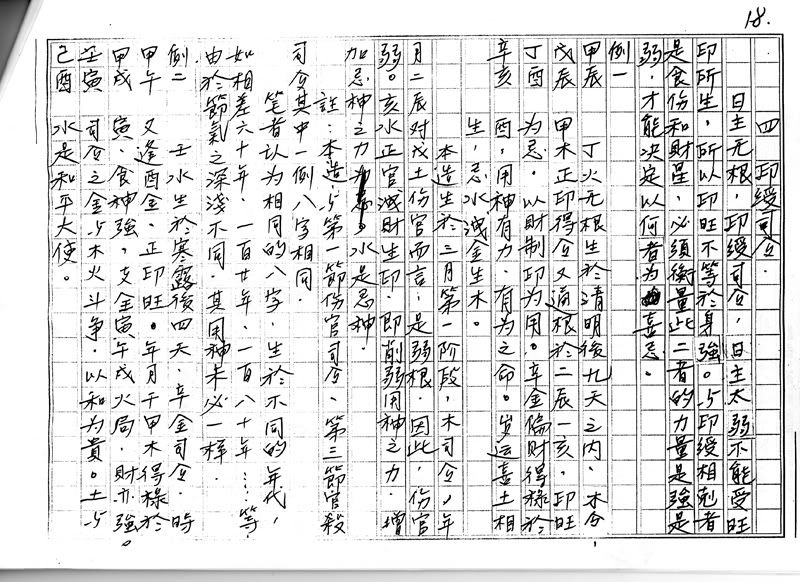 18.
四 印綬司令.
日主无根,印綬司令,日主太弱不能受旺
印所生,所以印旺不等於身強。与印綬相剋者
是食伤和財星,必須衡量此二者的力量是強是
弱.才能决定以何者为喜忌.
例一
甲辰 丁火无根生於清明後九天之內.木令
戊辰 甲木正印得令又滿根於二辰一亥,印旺
丁酉 为忌.以財制印为用.辛金偏財得祿於
辛亥 酉,用神有力.有为之命.岁运喜土相
生,忌水洩金生木。
本造生於三月第一阶段,木司令,年
月二辰对戊土伤官而言.是弱根.因此.伤官
弱。亥水正官洩財生印.即削弱用神之力.增
加忌神之力.水是忌神.
註:本造与第一節伤官司令、第三節官殺
司令其中一例八字相同.
笔者认为相同的八字,生於不同的年代,
如相差六十年、一百廿年、一百八十年……等.
由於節氣之深淺不同.其用神未必一样.
例二
甲午 壬水生於寒露後四天.辛金司令.時
甲戌 又逢酉金.正印旺。年月干甲木得祿於
壬寅 寅.食神強,支全寅午戌火局.財亦強。
己酉 司令之金与木火斗争.以和为貴。土与
水是和平大使。